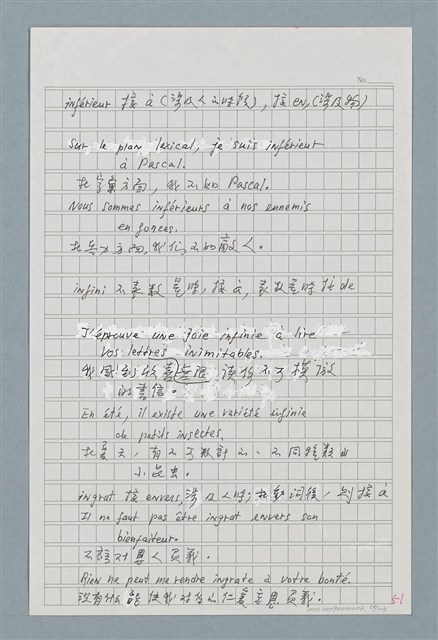 No.
inférieur 接 à (涉及人的時候), 接 en, (涉及物)
Sur le plan lexical, je suis inférieur
à Pascal.
在字彙方面, 我不如 Pascal.
Nous sommes inférieurs à nos ennemis
en forces.
在兵力方面, 我們不如敵人.
infini 不表數量時, 接 à, 表數量時接 de
J'éprouve une joie infinie à lire
vos lettres inimitables.
我感到欣喜無限 讀你不可模倣
的書信.
En été, il existe une variété infinie
de petits insectes.
在夏天, 有不可數計的、不同種類的
小昆虫.
ingrat 接 envers, 涉及人時; 在動詞後, 則接 à
Il ne faut pas être ingrat envers son
bienfaiteur.
不該對恩人負義.
Rien ne peut me rendre ingrate à votre bonté.
沒有什么能使我對您的仁慈忘恩負義.